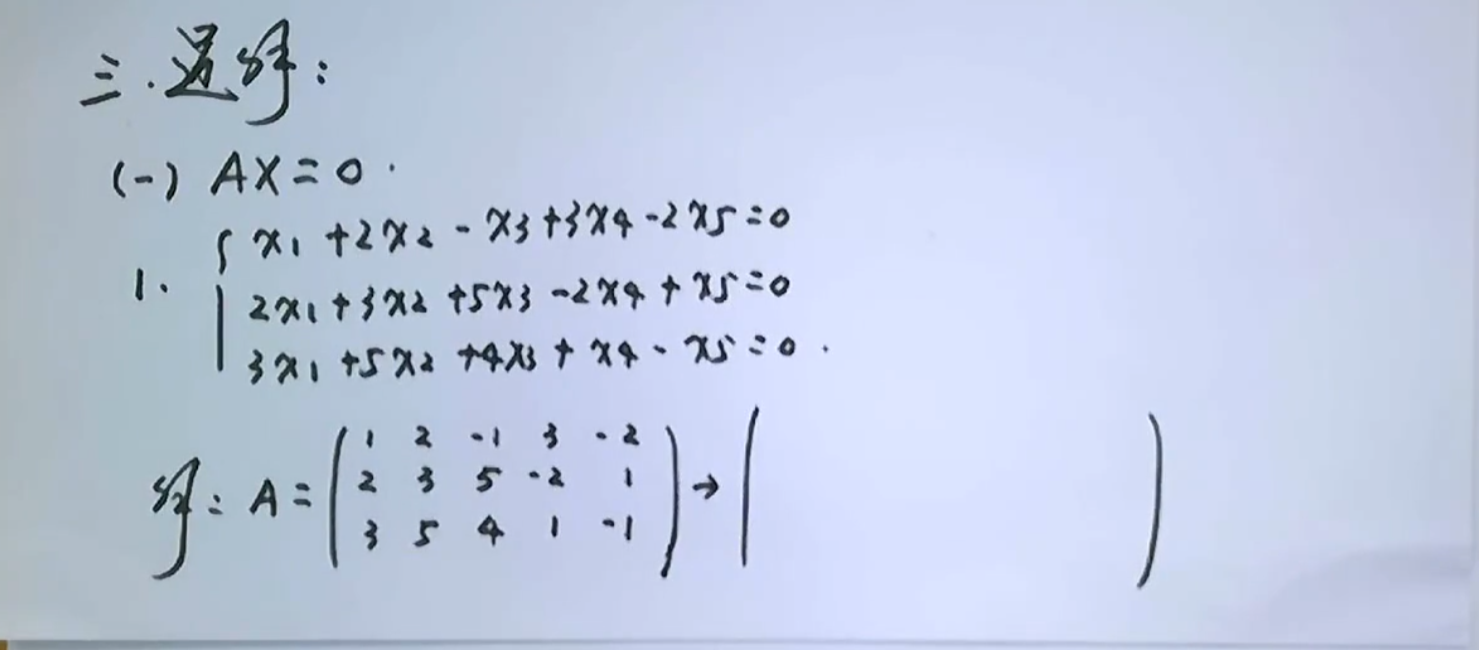 三.通解:
(一) AX=0.
1. { x1+2x2-x3+3x4-2x5=0
2x1+3x2+5x3-2x4+x5=0
3x1+5x2+4x3+x4-x5=0.
解: A=( 1 2 -1 3 -2 ) → ( )
2 3 5 -2 1
3 5 4 1 -1